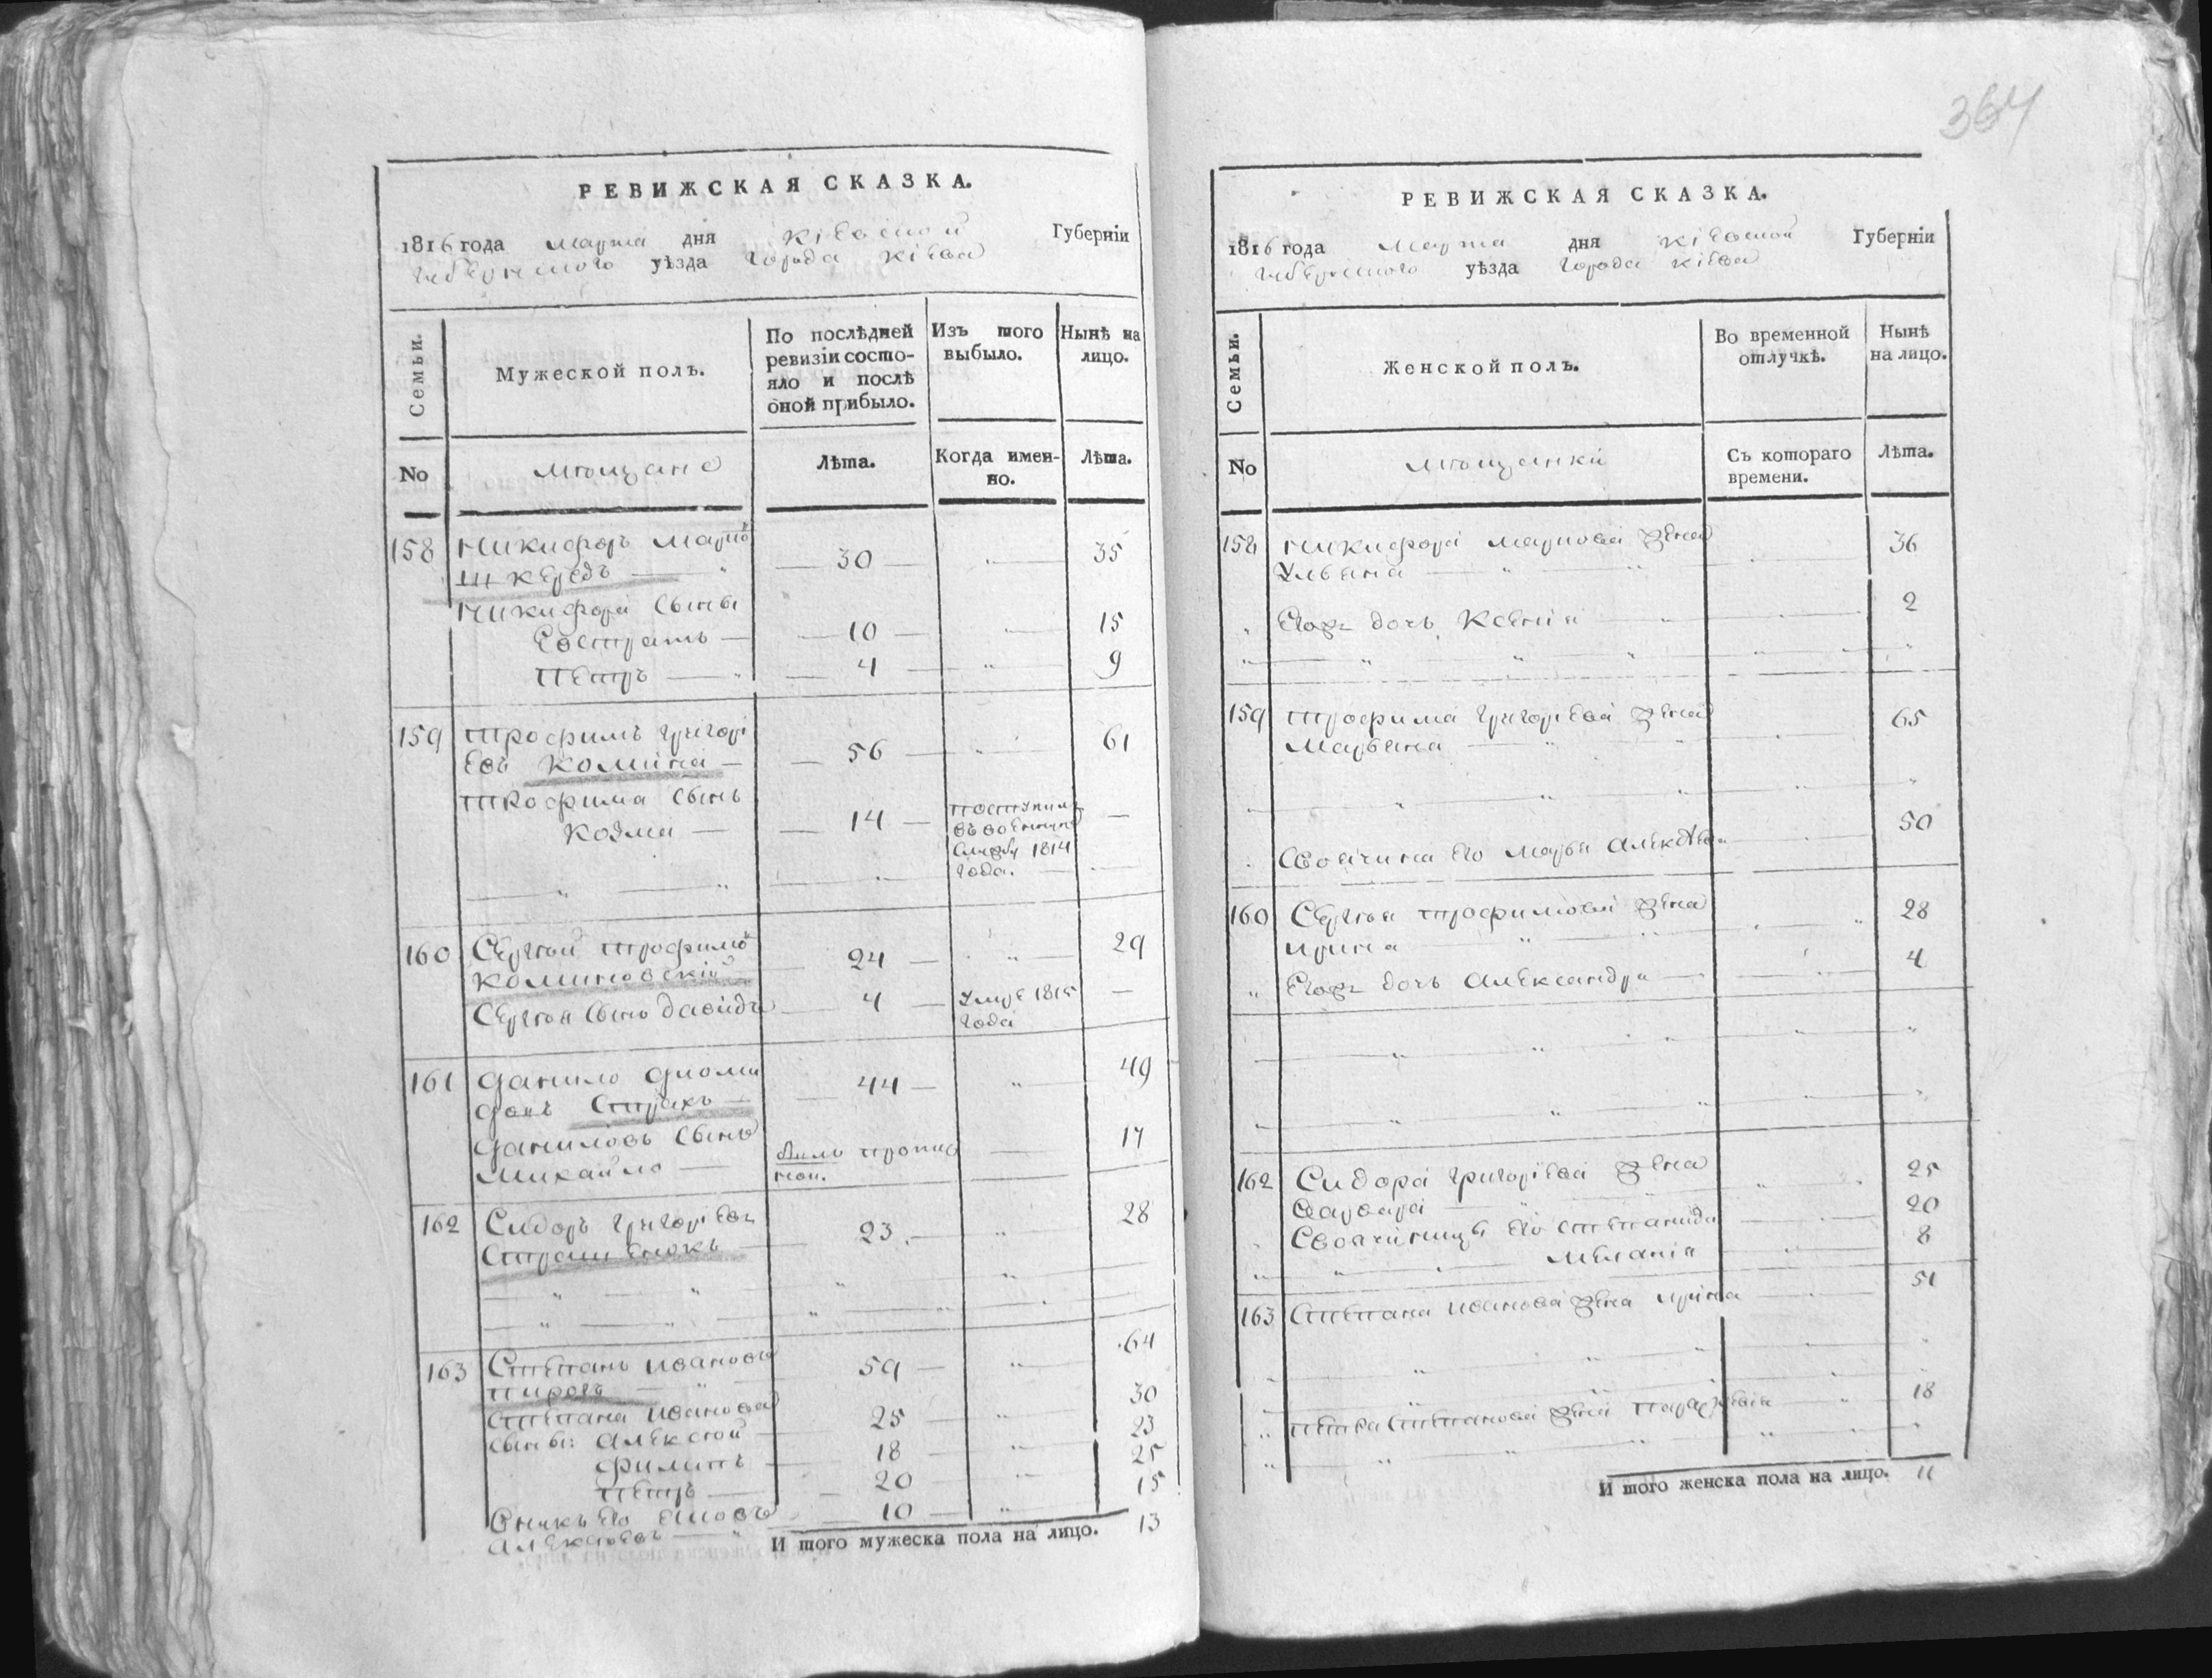 364
РЕВИЖСКАЯ СКАЗКА.
1816 года марта дня Кіевской Губерніи
Губернского уѣзда города Кіева
Семьи.
Мужеской полъ.
По послѣдней ревизіи состо-
яло и послѣ
оной прибыло.
Изъ того
выбыло.
Нынѣ на
лицо.
No
мѣщане
Лѣта.
Когда имен-
но.
Лѣта.
158 Никифоръ Марко 30 35
Никифора сыны
Евстратъ 10 15
Петръ 4 9
159 Трофимъ Григорі
евъ 56 61
Трофима сынъ
Козма 14 поступилъ
въ военную
службу 1814
года.
160 Сергѣй Трофимо 24 29
Сергѣя сынъ Давидъ 4 умре 1815
года
161 Данило
Страхъ 44 49
Даниловъ сынъ
Михайло былъ пропис
ной. 17
162 Сидоръ Григоріевъ 23 28
Страшенокъ
163 Степанъ Ивановъ 59 64
Пирогъ
Степана Иванова
сыны: Алексей 25 30
Филипъ 18 23
Петръ 20 25
Внукъ его 10 15
Алексѣевъ
И того мужеска пола на лицо. 13
РЕВИЖСКАЯ СКАЗКА.
1816 года Марта дня Кіевской Губерніи
Губернского уѣзда города Кіева
Семьи.
Женской полъ.
Во временной
отлучкѣ.
Нынѣ
на лицо.
No
мѣщанки
Съ котораго
времени.
Лѣта.
158 Никифора Маркова жена 36
Ульяна
Егожъ дочь Ксенія 2
159 Трофима Григорьева жена 65
Марьяна
Своячина его Марья 50
160 Сергѣя Трофимова жена 28
Ирина
Егожъ дочь Александра 4
162 Сидора Григоріева жена 25
Варвара
Своячиницы его Степанида 20
Меланія 8
163 Степана Иванова жена Ирина 51
Петра Степанова жена 18
И того женска пола на лицо. 11